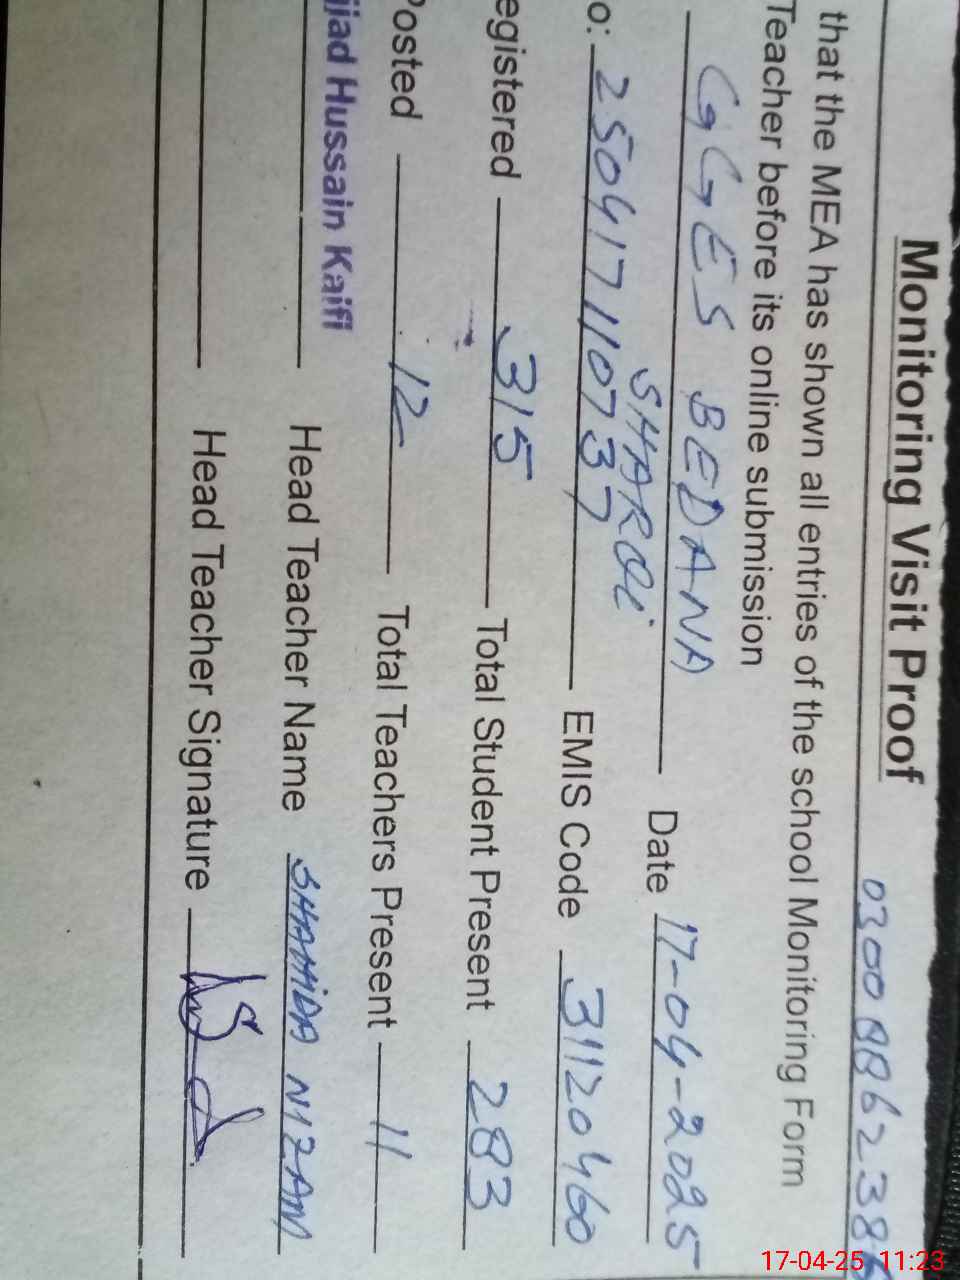 Monitoring Visit Proof
that the MEA has shown all entries of the school Monitoring Form
Teacher before its online submission
GGES BEDANA Date 17-04-2025
SHARQi
o: 2504171107337 EMIS Code 31120460
egistered 315 Total Student Present 283
Posted 12 Total Teachers Present 11
jjad Hussain Kaifi Head Teacher Name SHAMiDA NIZAM
Head Teacher Signature
17-04-25 11:23